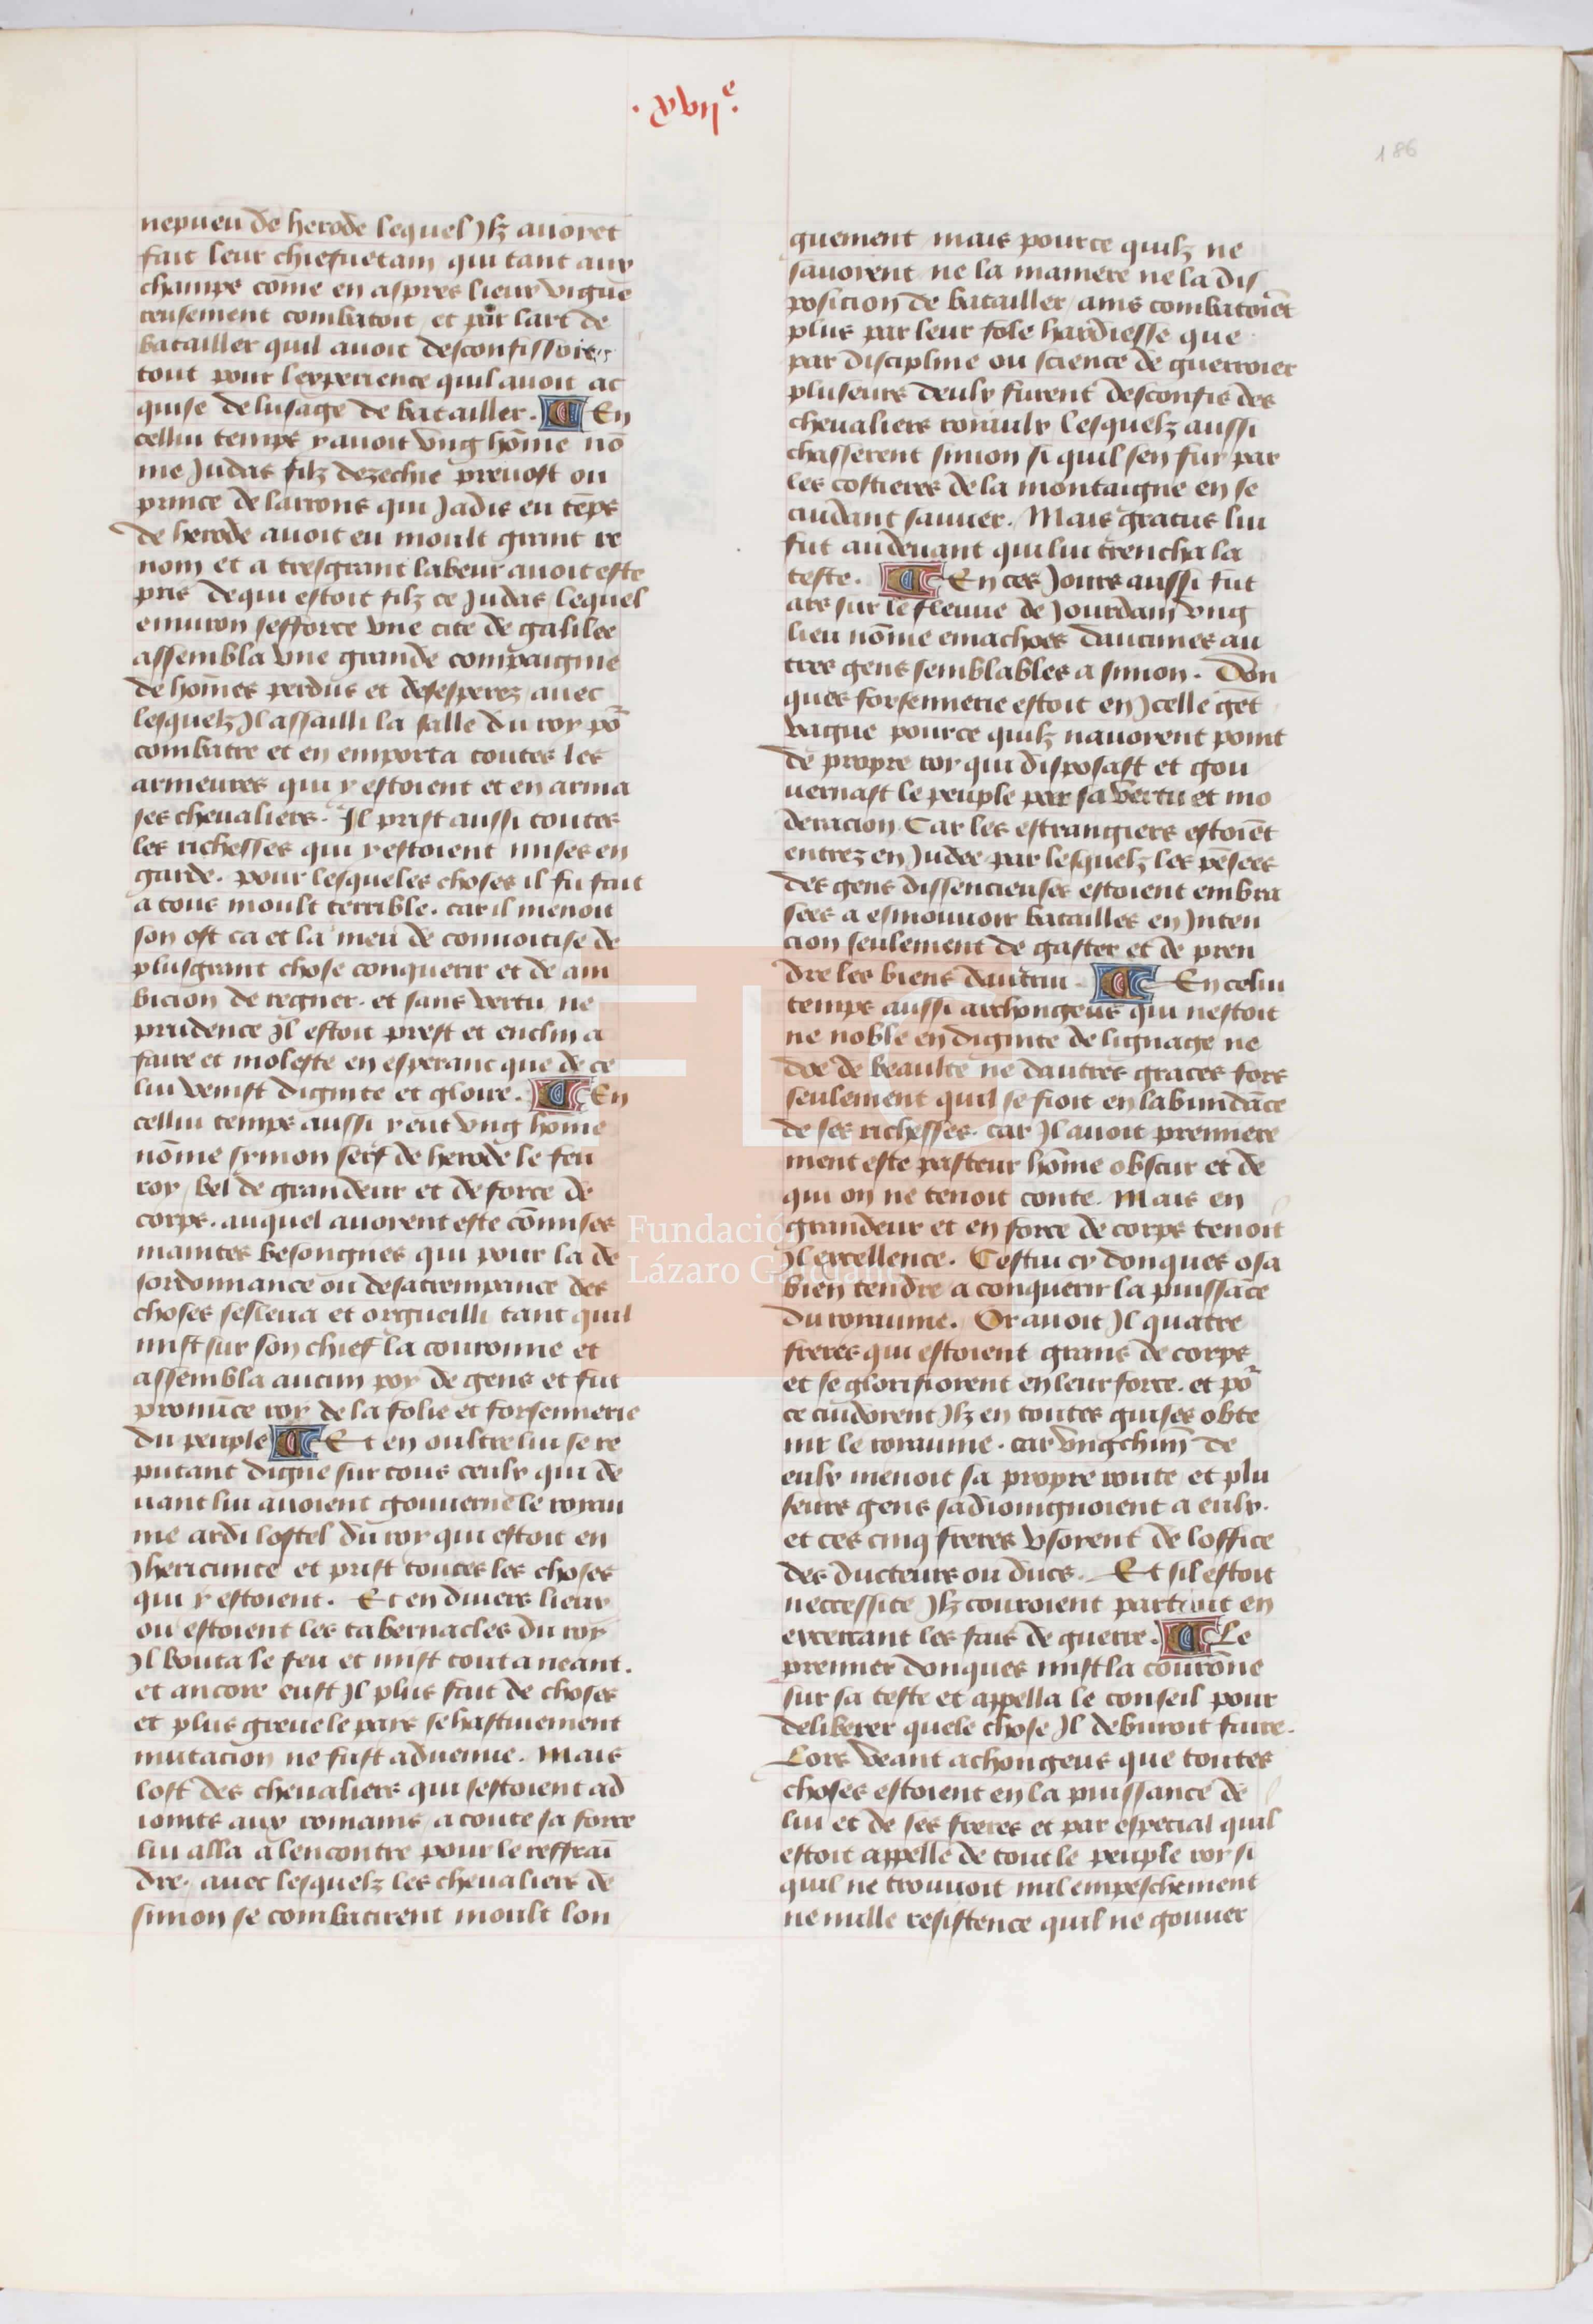 .xvije.
186
nepueu de herode lequel Jlz auoiēt
fait leur chiefuetain qui tant aux
champs cōme en aspres lieux vigue
reusement combatoit / et par lart de
batailler quil auoit desconfissoit
tout pour lexperience quil auoit ac
quise delusage de batailler. En
cellui temps y auoit vng hōme nō
me Judas filz dezechie preuost ou
prince de larrons qui Jadis eu tēps
de herode auoit eu moult grant re
nom et a tresgrant labeur auoit este
pris De qui estoit filz ce Judas / lequel
enuiron sefforce vne cite de galilee
assembla vne grande compaignie
de hōmes perdus et desesperez / auec
lesquelz Jl assailli la salle du roy pō
combatre et en emporta toutes les
armeures qui y estoient et en arma
ses cheualiers. Jl prist aussi toutes
les richesses qui y estoient mises en
garde. pour lesqueles choses il fu fait
a tous moult terrible. car il menoit
son ost ca et la meu de conuoitise de
plusgrant chose conquerir et de am
bicion de regner. et sans vertu ne
prudence Jl estoit prest et enclin a
faire et moleste en esperant que de ce
lui venist dignite et gloire. En
cellui temps aussi y eut vng home
nōme symon serf de herode le feu
roy / bel de grandeur et de force de
corps. auquel auoient este cōmises
maintes besongnes qui pour la de
sordonnance ou desatrempance des
choses sesleua et orgueilli tant quil
mist sur son chief la couronne et
assembla aucun poy de gens et fut
pronūce roy de la folie et forsennerie
du peuple Et en oultre lui se re
putant digne sur tous ceulx qui de
uant lui auoient gouuerne le royau
me ardi lostel du roy qui estoit en
Jhericunte et prist toutes les choses
qui y estoient. Et en diuers lieux
ou estoient les tabernacles du roy
Jl bouta le feu et mist tout a neant.
et ancore eust Jl plus fait de choses
et plus greue le pays se hastiuement
mutacion ne fust aduenue. Mais
lost des cheualiers qui sestoient ad
ioints aux romains / a toute sa force
lui alla a lencontre pour le reffrai
dre. auec lesquelz les cheualiers de
simon se combatirent moult lon
guement mais pource quilz ne
sauoient ne la maniere ne la dis
posicion de batailler / ains combatoiēt
plus par leur fole hardiesse que
par discipline ou science de guerroier
pluseurs deulx furent desconfis des
cheualiers roiaulx lesquelz aussi
chasserent simon si quil sen fui par
les costieres de la montaigne en se
cuidant sauuer. Mais gratus lui
fut audeuant qui lui trencha la
teste. En ces Jours aussi fut
ars sur le fleuue de Jourdain vng
lieu nōme emachoes daucunes au
tres gens semblables a simon. Don
ques forsennerie estoit en Jcelle gēt
vague pource quilz nauoient point
de propre roy qui disposast et gou
uernast le peuple par sa vertu et mo
deracion Car les estrangiers estoiēt
entrez en Judee par lesquelz les pēsees
des gens dissencieuses estoient embra
sees a esmouuoir batailles en Jnten
cion seulement de gaster et de pren
dre les biens dautrui. En celui
temps aussi archongeus qui nestoit
ne noble en dignite de lignage ne
doe de beaulte ne dautres graces fors
seulement quil se fioit en labundāce
de ses richesses. car Jl auoit premiere
ment este pasteur hōme obscur et de
qui on ne tenoit conte. Mais en
grandeur et en force de corps tenoit
Jl excellence. Cestui cy donques osa
bien tendre a conquerir la puissāce
du roiaume. Or auoit Jl quatre
freres qui estoient grans de corps
et se glorifioient en leur force. et pō
ce cuidoient Jlz en toutes guises obte
nir le roiaume. car vngchūn de
eulx menoit sa propre route / et plu
seurs gens sadioingnoient a eulx.
et ces cinq freres vsoient de loffice
des ducteurs ou ducs. Et sil estoit
neccessite Jlz couroient partout en
excercant les fais de guerre. Le
premier donques mist la courōne
sur sa teste et appella le conseil pour
deliberer quele chose Jl deburoit faire.
Lors veant achongeus que toutes
choses estoient en la puissance de
lui et de ses freres et par especial quil
estoit appelle de tout le peuple roy si
quil ne trouuoit nul empeschement
ne nulle resistence quil ne gouuer
Fundación
Lázaro Galdiano